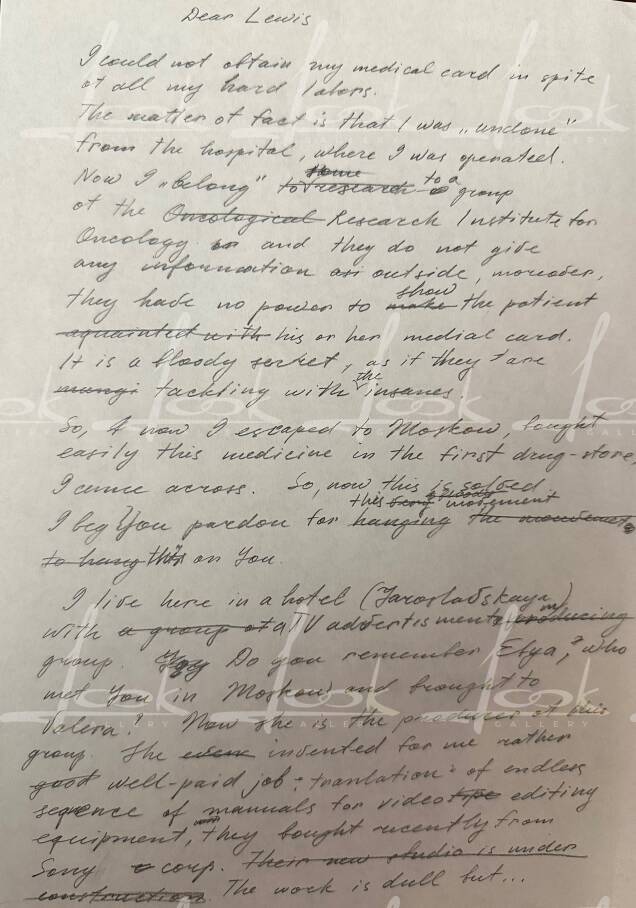 Dear Lewis
I could not obtain my medical card in spite
of all my hard labors.
The matter of fact is that I was „undone"
from the hospital, where I was operated.
Now I „belong" to some research to a group
of the Oncological Research Institute for
Oncology and they do not give
any information outside, moreover,
they have no power to make show the patient
aquainted with his or her medial card.
It is a bloody serket, as if they are
tackling with the insanes.
So, now I escaped to Moskow, bought
easily this medicine in the first drug-store,
I came across. So, now this is solved.
I beg You pardon for hanging this bloody movement the movement
to hang this on You.
I live here in a hotel (Jaroslavskaya)
with a group of a TV advertisment producing
group. Do you remember Elya, who
met You in Moskow and brought to
Valera? Now she is the producer of this
group. She invented for me rather
good well-paid job: "tranlation" of endless
seqence of manuals for video type editing
equipment, they bought recently from
Sony corp. Their new studio is under
construction. The work is dull but...
LOOK
GALLERY